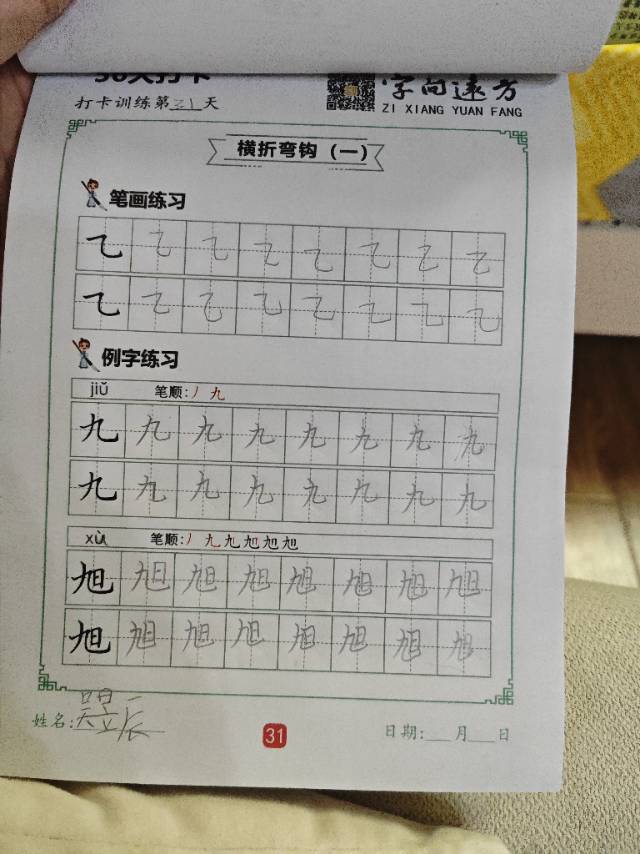 30天打卡
字向远方
打卡训练第31天
ZI XIANG YUAN FANG
横折弯钩（一）
笔画练习
乙 乙 乙 乙 乙 乙 乙 乙
乙 乙 乙 乙 乙 乙 乙 乙
例字练习
jiǔ 笔顺: 丿 九
九 九 九 九 九 九 九 九
九 九 九 九 九 九 九 九
xù 笔顺: 丿 九 九 旭 旭 旭
旭 旭 旭 旭 旭 旭 旭 旭
旭 旭 旭 旭 旭 旭 旭 旭
姓名:
31
日期:___月___日